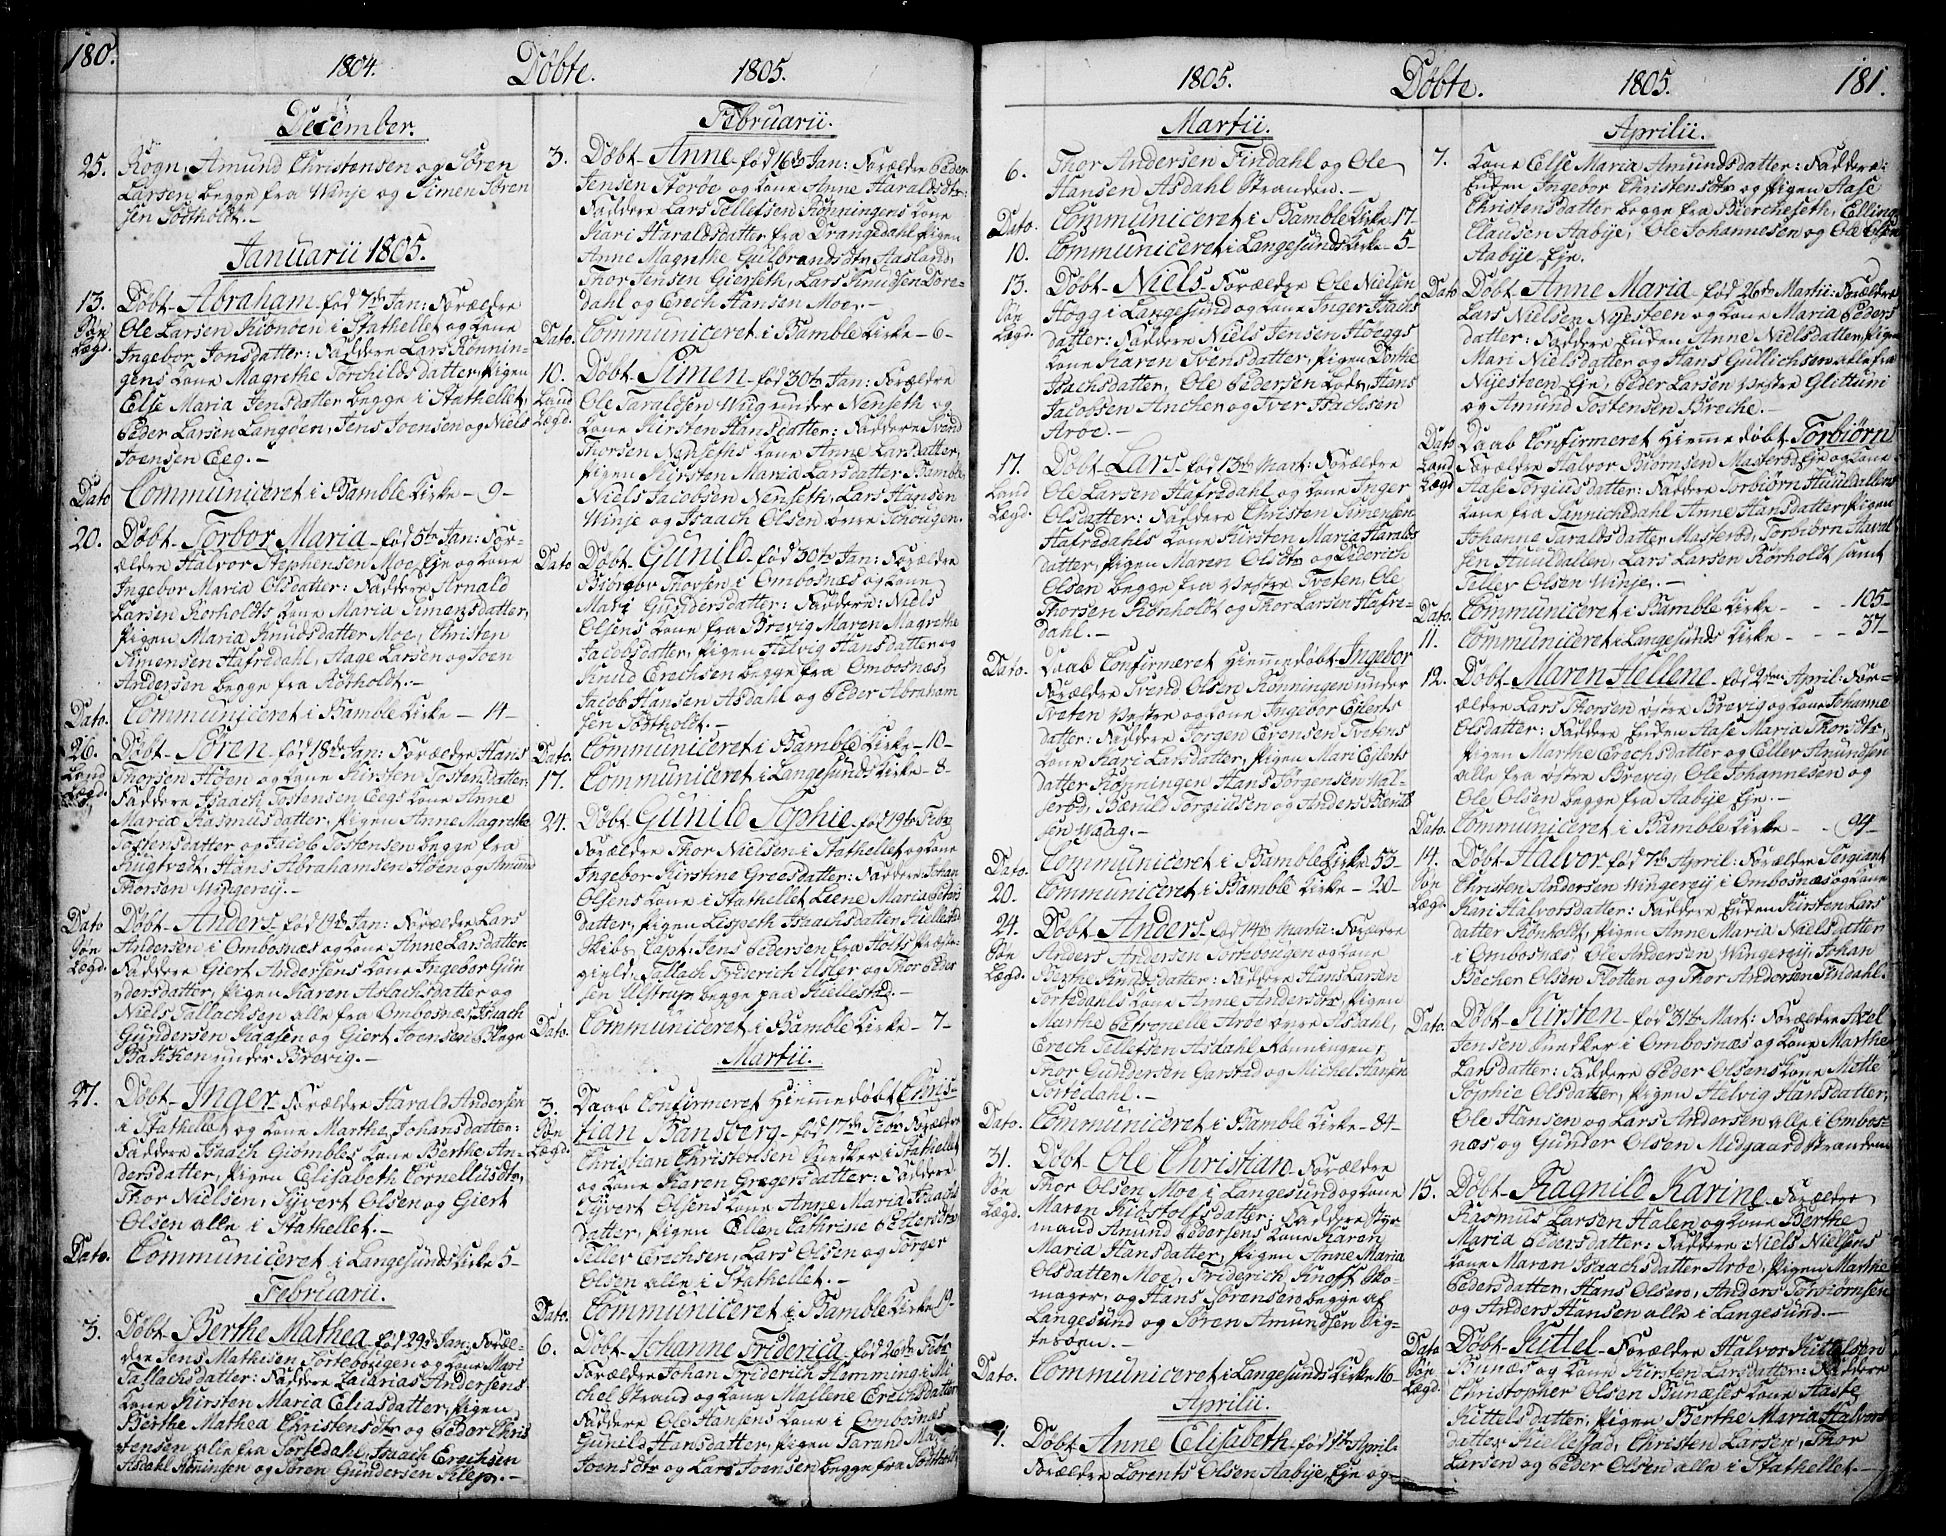 180.
1804. Døbte. 1805.
December.
25. Kogn, Amund Christensen og Sören
Larsen begge fra Winje og Simen Sören
sen Todtholdt.-
Januarii 1805.
13. Döbt Abraham född 7de Jan: Forældre
Söe Lægd. Ole Larsen Kronöen i Stathellet og Kone
Ingebor Jonsdatter: Faddere Lars Rönnin-
gens Kone Magrethe Torchildsdatter, Pigen
Else Maria Jensdatter begge i Stathellet,
Peder Larsen Langöen, Jens Joensen og Niels
Joensen Eeg.-
Dato Communiceret i Bamble Kirke - 9 -
20. Döbt Torbor Maria föd 5te Jan: For-
ældre Halvor Stephensen Moe Eje og Kone
Ingebor Maria Olsdatter: Faddere Arnald
Larsen Rorholdts Kone Maria Simensdatter,
Pigen Maria Knudsdatter Moe, Christen
Simensen Hafredahl, Aage Larsen og Joen
Andersen begge fra Rörholdt.-
Dato. Communiceret i Bamble Kirke - 14 -
26. Döbt Sören föd 18de Jan: Forældre Hans
Land Lægd. Thorsen Aaen og Kone Kirsten Tostensdatter:
Faddere Isaach Tostensen Eegs Kone Anne
Maria Rasmusdatter, Pigen Anne Magrethe
Tostensdatter og Jacob Tostensen begge fra
Hugtvedt, Hans Abrahamsen Höen og Amund
Thorsen Wingereij.-
Dato Döbt Anders föd 19de Jan: Forældre Lars
Söe Lægd. Andersen i Ombosnæs og Kone Anne Larsdatter
Faddere Giert Andersens Kone Ingebor Gun
dersdatter, Pigen Karen Aslachsdatter og
Niels Tallachsen alle fra Ombosnæs, Isaach
Gundersen Kaasen og Giert Joensen Blege
Bakken under Brevig.-
27. Döbt Inger Forældre Harald Andersen
i Stathellet og Kone Marthe Johansdatter:
Faddere Isaach Giömbles Kone Berthe An-
dersdatter, Pigen Elisabeth Cornellusdtr,
Thor Nielsen, Syvert Olsen og Giert
Olsen alle i Stathellet.-
Dato. Communiceret i Langesunds Kirke 5 -
Februarii.
3. Döbt Berthe Mathea föd 29de Jan: Foræl-
dre Jens Mathisen Tortebougen og Kone Mari
Tallachsdatter: Faddere Zacarias Andersens
Kone Kirsten Maria Eliasdatter, Pigen
Berthe Mathea Christensdtr og Peder Chris
tensen alle fra Tortedahl, Isaach Erechsen
Asdahl Rönningen og Sören Gundersen Klep.-
Februarii.
3. Döbt Anne föd 16de Jan: Forældre Peder
Jensen Storöe og Kone Anne Haraldsdtr:
Faddere Lars Tellefsen Rönningens Kone
Kari Haraldsdatter fra Drangedahl, Pigen
Anne Magrethe Gulbrandsdtr Aasland,
Thor Jensen Gierseth, Lars Knudsen Dore-
dahl og Erech Hansen Moe.-
Dato. Communiceret i Bamble Kirke - 6 -
10. Döbt Simen föd 30te Jan: Forældre
Land Lægd. Ole Taraldsen Wug under Nenseth og
Kone Kirsten Hansdatter: Faddere Svend
Thorsen Nenseths Kone Anne Larsdatter,
Pigen Kirsten Maria Larsdatter Bamble
Niels Jacobsen Nenseth, Lars Hansen
Winje og Isaach Olsen övre Schougen.
Dato Döbt Gunild föd 30te Jan: Forældre
Biörnbo Thorsen i Ombosnæs og Kone
Mari Gundersdatter: Faddere: Niels
Olsens Kone fra Brevig Maren Magrethe
Jacobsdatter, Pigen Helvig Hansdatter og
Knud Erechsen begge fra Ombosnæs,
Jacob Hansen Asdahl og Peder Abraham
sen Todtholdt.-
Dato. Communiceret i Bamble Kirke - 10 -
17. Communiceret i Langesunds Kirke - 8 -
24. Döbt Gunild Sophie föd 19de Febr
Forældre Thor Nielsen i Stathellet og Kone
Ingebor Kirstine Greesdatter: Faddere Johan
Olsens Kone i Stathellet Leene Maria Peders
datter, Pigen Lispeth Isaachsdatter Kiellestad
Skibs Capt. Jens Pedersen fra Holts Præste-
gield, Tallach Friderich Usler og Thor Peder
sen Ulstrup begge paa Kiellestad.-
Dato. Communiceret i Bamble Kirke - 7 -
Martii.
3. Daab Confirmeret Hiemmedöbt Chris-
Söe Lægd. tian Bansberg föd 17de Febr Forældre
Christian Christensen Snedker i Stathellet
og Kone Karen Gregersdatter: Faddere
Syvert Olsens Kone Anne Maria Isachs
datter, Pigen Ellen Cathrine Pedersdtr
Tellev Erechsen, Lars Olsen og Törger
Olsen alle i Stathellet.-
Dato. Communiceret i Bamble Kirke 19-
6. Döbt Johanne Friderica föd 26de Febr
Forældre Johan Friderich Hemming i Mi-
chel Strand og Kone Mallene Erechsdatter
Faddere Ole Hansens Kone i Ombosnæs
Gunild Hansdatter, Pigen Tarand Ma
Joensdtr og Lars Joensen begge fra Todtholdt
1805. Døbte. 1805. 181.
Martii.
6. Thor Andersen Findahl og Ole
Hansen Asdahl Stranden.-
Dato. Communiceret i Bamble Kirke 17-
10. Communiceret i Langesunds Kirke - 5 -
13. Döbt Niels Forældre Ole Nielsen
Söe Lægd. Högg i Langesund og Kone Inger Isachs
datter: Faddere Niels Jensen Hoeggs
Kone Karen Svensdatter, Pigen Dorthe
Isachsdatter, Ole Pedersen Lods, Hans
Jacobsen Ancher og Iver Isachsen
Aröe.-
17. Döbt Lars föd 13de Mart: Forældre
Land Lægd. Ole Larsen Hafredahl og Kone Inger
Olsdatter: Faddere Christen Simensen
Hafredahls Kone Kirsten Maria Haralds
datter, Pigen Maren Olsdtr og Diderich
Olsen begge fra Vestre Tveten, Ole
Thorsen Rönholdt og Thor Larsen Hafre-
dahl.-
Dato. Daab Confirmeret Hiemmedöbt Ingebor
Forældre Svend Olsen Rönningen under
Tveten Vestre og Kone Ingebor Eilerts
datter: Faddere Jörgen Evensen Tvetens
Kone Kari Larsdatter, Pigen Mari Eilerts
datter Rönningen, Hans Jörgensen Val-
leröd, Bærulf Torgiusen og Anders Bents
sen Waag.-
Dato. Communiceret i Bamble Kirke 53-
20. Communiceret i Bamble Kirke - 20 -
24. Döbt Anders föd 14de Martii: Forældre
Söe Lægd. Anders Andersen Tortebougen og Kone
Berthe Amundsdatter: Faddere Hans Larsen
Tortedahls Kone Anne Andersdtr, Pigen
Marthe Petronelle Aröe övre Asdahl,
Erech Tellefsen Asdahl Rönningen,
Thor Gundersen Garstad og Michel Hansen
Tortedahl.-
Dato. Communiceret i Bamble Kirke - 84 -
31. Döbt Ole Christian Forældre
Söe Lægd. Thor Olsen Moe i Langesund og Kone
Maren Kistolfsdatter: Faddere Styr
mand Amund Pedersens Kone Karen
Maria Hansdatter, Pigen Anne Maria
Olsdatter Moe, Friderich Knoff Sko-
mager, og Hans Sörensen begge af
Langesund og Sören Amundsen Sig-
teboen.-
Dato. Communiceret i Langesunds Kirke 16-
Aprilii.
7. Döbt Anne Elisabeth föd 1st April
Forældre Lorents Olsen Aabije Eje og
Aprilii.
7. Kone Else Maria Amundsdatter: Faddere:
Enken Ingebor Christensdtr og Pigen Aase
Christensdatter begge fra Bierckeseth, Elling
Clausen Aabije, Ole Johannesen og Ole Olsen
Aabije Eje.
Dato Döbt Anne Maria föd 26de Martii: Forældre
Lars Nielsen Nijesteen og Kone Maria Peders
datter: Faddere Enken Anne Nielsdatter, Pigen
Mari Nielsdatter og Hans Gullichsen alle fra
Nijesteen Eje, Peder Larsen Vestre Glittum
og Amund Tostensen Breche.-
Dato Daab Confirmeret Hiemmedöbt Torbiörn
Land Lægd Forældre Halvor Biörnsen Masteröd Eje og Kone
Aase Torgiusdatter: Faddere Torbiörn Hauldallens
Kone fra Sannichedahl Anne Hansdatter, Pigen
Johanne Taraldsdatter Masteröd, Torbiörn Haval
sen Hauldallen, Lars Larsen Rörholdt samt
Tellev Olsen Winje.-
Dato. Communiceret i Bamble Kirke - - - 105-
11. Communiceret i Langesunds Kirke - - - 37-
12. Döbt Maren Hellene föd 2den April: For-
ældre Lars Thorsen östre Brevig og Kone Johanne
Olsdatter: Faddere Enken Aase Maria Thorsdtr,
Pigen Marthe Erechsdatter og Ellev Amundsen
alle fra östre Brevig, Ole Johannesen og
Ole Olsen begge fra Aabije Eje.-
Dato. Communiceret i Bamble Kirke - - 94 -
14. Döbt Halvor föd 7de April: Forældre Sergiant
Söe Lægd. Christen Andersen Wingereij i Ombosnæs og Kone
Kari Halvorsdatter: Faddere Enken Kirsten Lars
datter Rönholdt, Pigen Anne Maria Nielsdatter
i Ombosnæs, Ole Andersen Wingereij, Johan
Becher Olsen Flotten og Thor Andersen Findahl.
Dato. Döbt Kirsten föd 31te Mart: Forældre Axel
Jensen Snedker i Ombosnæs og Kone Marthe
Larsdatter: Faddere Peder Olsens Kone Mette
Sophie Olsdatter, Pigen Helvig Hansdatter,
Ole Hansen og Lars Andersen alle i Ombos-
næs og Gunder Olsen Midgaardstrandene
15. Döbt Ragnild Karine Forældre
Rasmus Larsen Halen og Kone Berthe
Maria Pedersdatter: Faddere Niels Nielsens
Kone Maren Isaachsdatter Aröe, Pigen Marthe
Pedersdatter, Hans Olsen, Anders Torbiörnsen
og Anders Hansen alle i Langesund.-
Dato Döbt Kittel Forældre Halvor Kittelsen
Söe Lægd. Bunæs og Kone Kirsten Larsdatter: Faddere
Christopher Olsen Bunæses Kone Aaste
Kittelsdatter, Pigen Berthe Maria Halvors
datter Kiellestad, Christen Larsen, Thor
Larsen og Peder Olsen alle i Stathellet.-